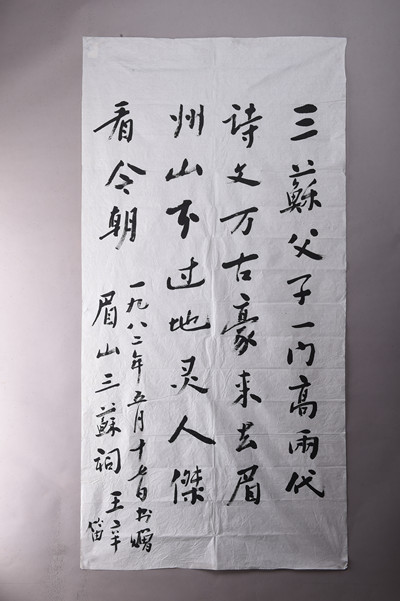 三蘇父子一门高兩代
诗文万古豪来去眉
州山下过地灵人傑
看今朝
一九八二年五月十七日书赠
眉山三蘇祠 王辛笛